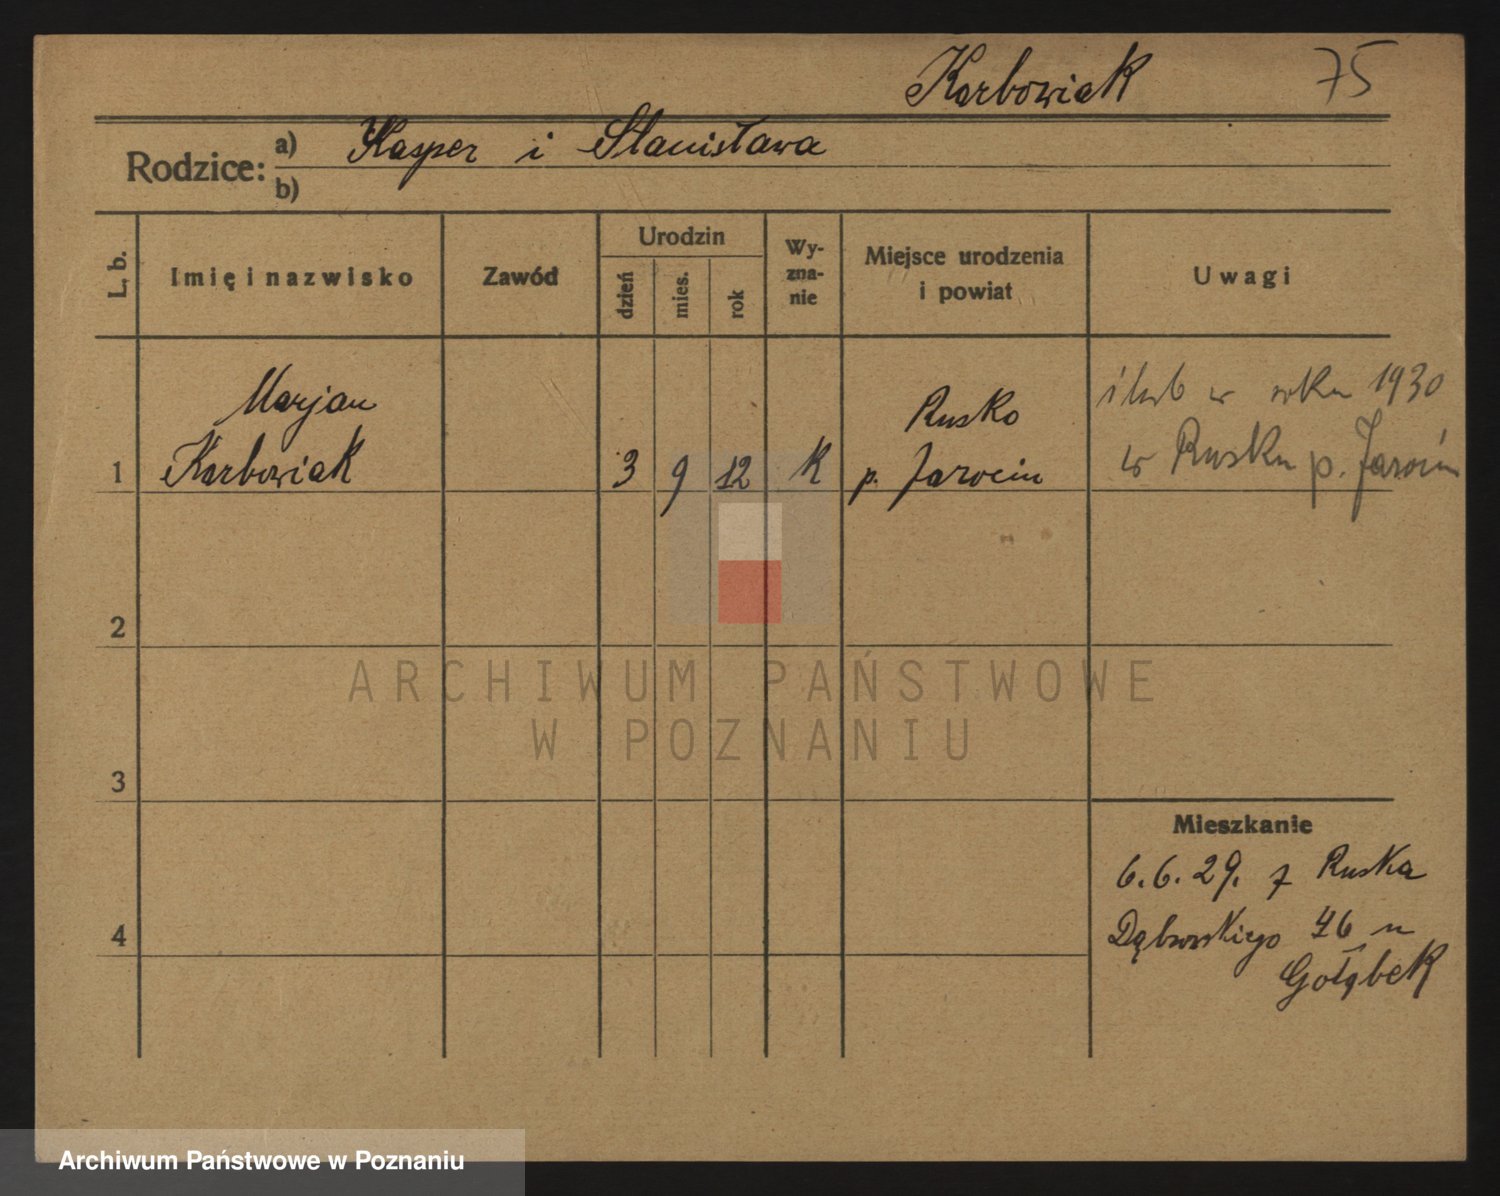 Karbowiak 75
Rodzice: a) Kasper i Stanisława
b)
L. b. Imię i nazwisko Zawód Urodzin dzień mies. rok Wy-zna-nie Miejsce urodzenia i powiat Uwagi
Marjan Rusko ślub w roku 1930
1 Karbowiak 3 9 12 K p. Jarocin w Rusku p. Jarocin
2
ARCHIWUM PAŃSTWOWE
W POZNANIU
3
Mieszkanie
6.6.29. z Ruska
4 Dąbrowskiego 46 u
Gołąbek
Archiwum Państwowe w Poznaniu